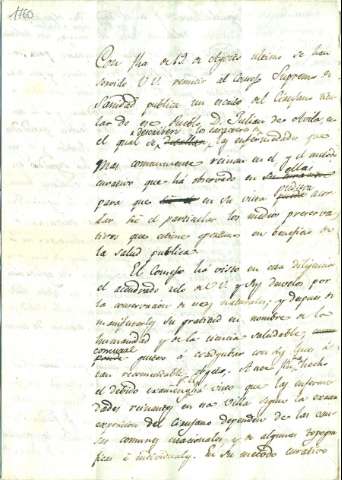 1760
Con fha de 12 de Agosto ultimo se han
servido VV. remitir al Consejo Supremo de
Sanidad publica un escrito del Cirujano titu
lar de ese Pueblo D. Julian de
el qual se describen las enfermedades que
mas comunmente reinan en el y el metodo
curativo que ha observado en ellas
para que en su vista pudiera acor
dar en el particular los medios preserva
tivos que estime oportunos en beneficio de
la salud publica.
El Consejo ha visto en esta diligencia
el acendrado zelo de VV. y sus desvelos por
la conservacion de sus naturales; y despues de
manifestarles su gratitud en nombre de la
humanidad y de la ciencia saludable,
quiero è coadyubar con sus luces à
tan recomendable objeto. A este fin hecho
el debido examen ha visto que las enferme
dades reinantes en esa Villa segun la
exposicion del Cirujano dependen de las cau
sas comunes estacionales, y de algunas topogra
ficas è individuales. En su metodo curativo